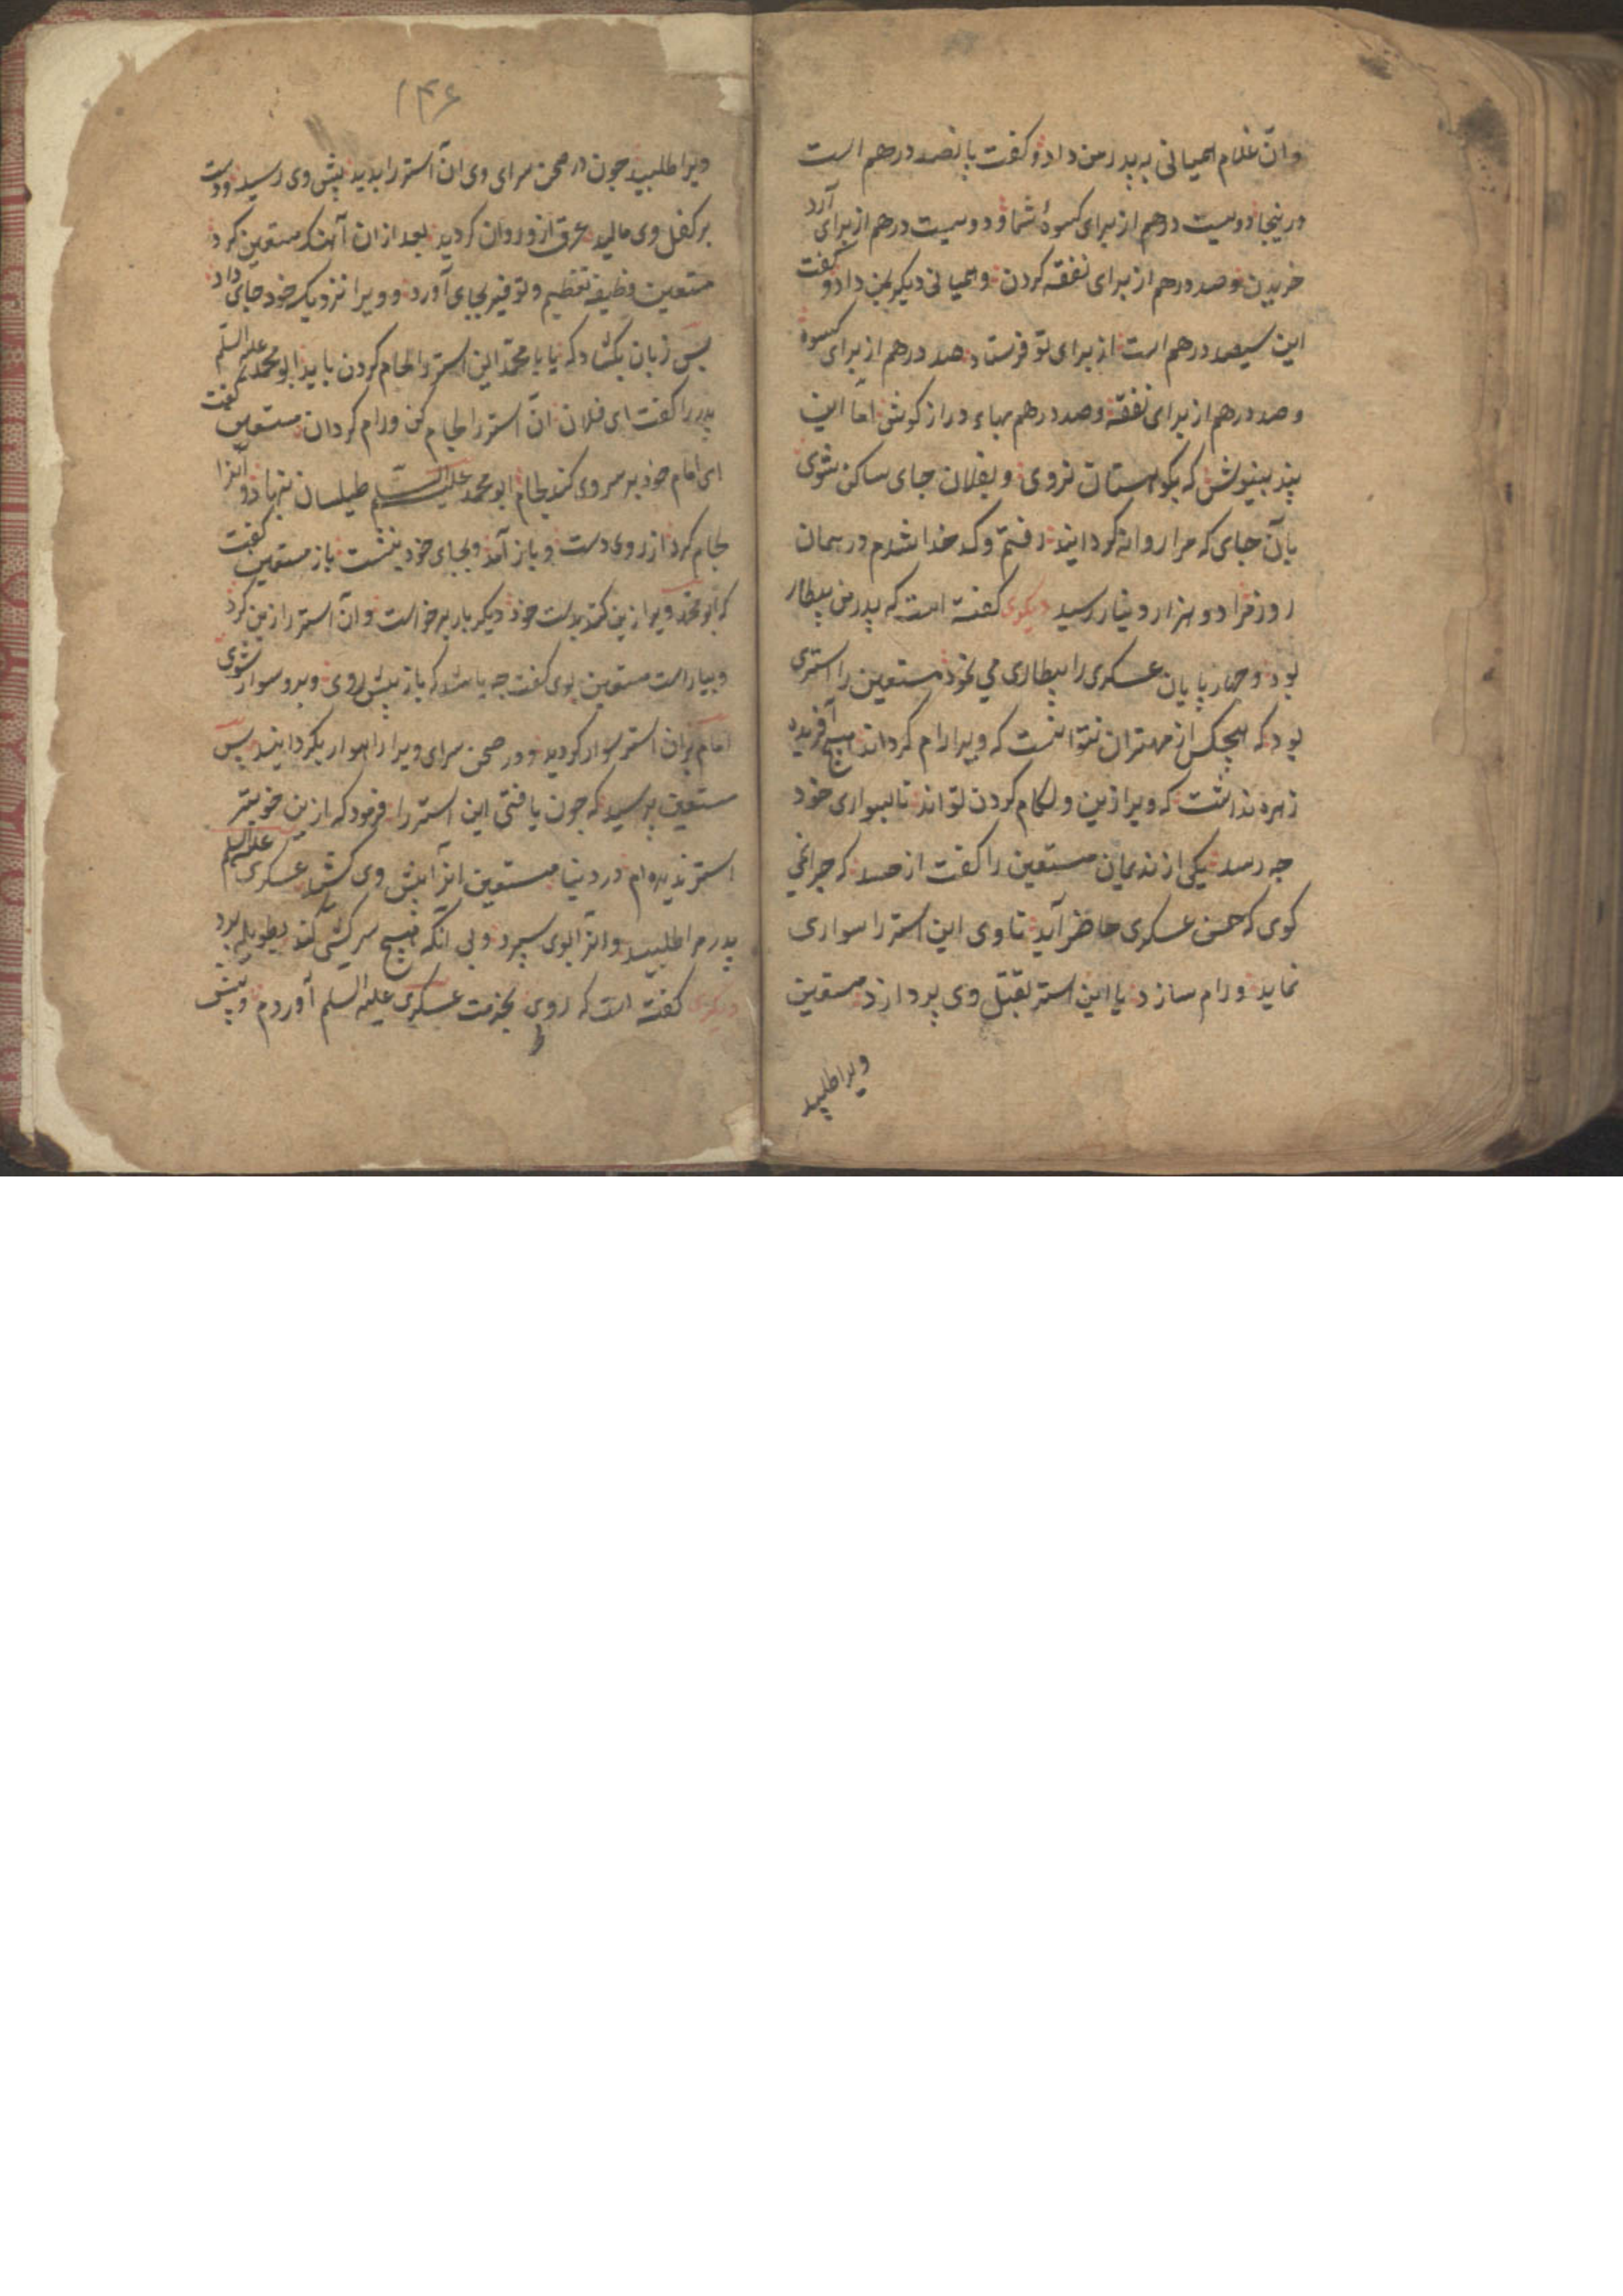 وآن غلام همیانی به پدر من داد و کفت پانصد درهم است
درینجا دویست درهم از برای کسوهٔ شما و دویست درهم از برای آرد
خریدن وصد درهم از برای نفقه کردن وهمیانی دیکر بمن داد و کفت
این سیصد درهم است از برای تو فرستاد صد درهم از برای کسوه
وصد درهم از برای نفقه وصد درهم بهاء دراز کوش اما این
پند بنیوش که بکوهستان نروی وبفلان جای ساکن شوی
بآن جای که مرا روانه کردانید رفتم وکدخدا شدم در همان
روز مرا دو هزار دینار رسید دیکری کفته است که پدر من بیطار
بود وچهار پایان عسکری را بیطاری می نمود مستعین را استری
بود که هیچکس از مهتران نتوانست که ویرا رام کرداند هیچ آفریده
زهره نداشت که ویرا زین ولکام کردن تواند تا بسواری خود
چه رسد یکی از ندیمان مستعین را کفت از حسد که چرا نمی
کوی که حسن عسکری حاضر آید تا وی این استر را سواری
نماید ورام سازد یا این استر بقتل وی پردازد مستعین
ویرا طلبید
۱۳۶
ویرا طلبید چون در صحن سرای وی آن استر را بدید پیش وی رسید ودست
بر کفل وی مالید عرق ازو روان کردید بعد ازان آهنک مستعین کرد
مستعین وظیفه تعظیم وتوقیر بجای آورد و ویرا نزدیک خود جای داد
پس زبان بکشاد که یا با محمد این استر را لجام کردن باید ابو محمد علیه السلم
پدر را کفت ای فلان آن استر را لجام کن ورام کردان مستعین کفت
ای امام خود بر سر وی کند لجام ابو محمد علیه السلم طیلسان بنهاد و آنرا
لجام کرد از روی دست وباز آمد وبجای خود بنشست باز مستعین کفت
که ابو محمد ویرا زین کند بدست خود دیکر بار برخواست وآن استر را زین کرد
وبیاراست مستعین بوی کفت چه باشد که باز پیش روی وبرو سوار شوی
امام بران استر سوار کردید ودر صحن سرای ویرا راهوار بکردانید پس
مستعین پرسید که چون یافتی این استر را فرمود که ازین خوبتر
استر ندیده ام در دنیا مستعین آنرا پیش وی کشید عسکری علیه السلم
پدر مرا طلبید وآنرا بوی سپرد وبی آنکه هیچ سرکشی کند بطویله برد
دیکری کفته است که روی بخدمت عسکری علیه السلم آوردم وپیش